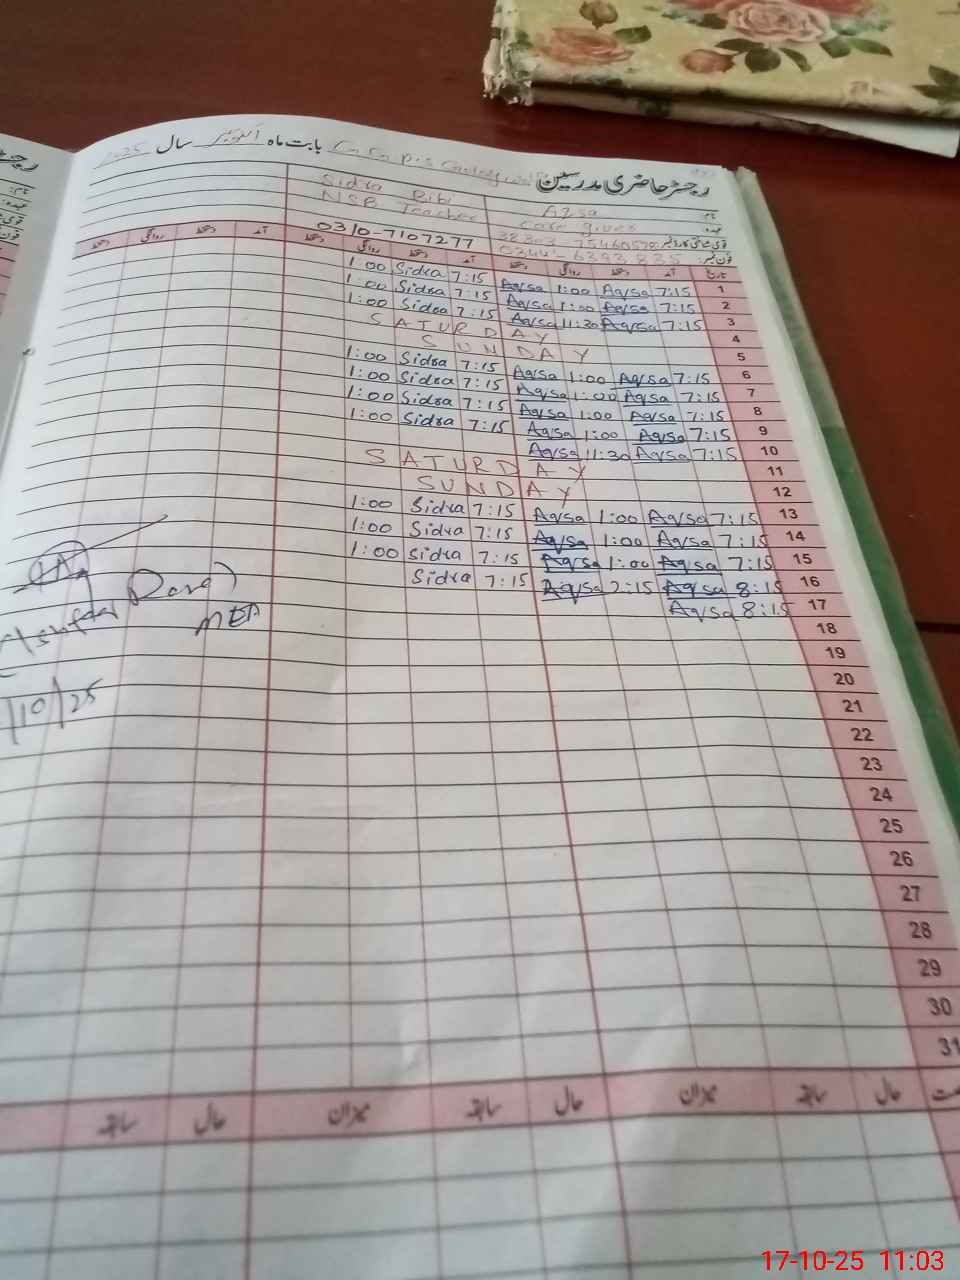 رجسٹر حاضری مدرسین G.G.P.S بابت ماہ اکتوبر سال 2025
نام: Aqsa Sidra Bibi
عہدہ: Care giver NSB Teacher
قومی شناختی کارڈ نمبر:
فون نمبر: 0310-7107277
تاریخ آمد دستخط روانگی دستخط آمد دستخط روانگی دستخط آمد دستخط روانگی دستخط
1:00 Sidra 7:15 Aqsa 1:00 Aqsa 7:15 1
1:00 Sidra 7:15 Aqsa 1:00 Aqsa 7:15 2
1:00 Sidra 7:15 Aqsa 11:30 Aqsa 7:15 3
SATURDAY 4
SUNDAY 5
1:00 Sidra 7:15 Aqsa 1:00 Aqsa 7:15 6
1:00 Sidra 7:15 Aqsa 1:00 Aqsa 7:15 7
1:00 Sidra 7:15 Aqsa 1:00 Aqsa 7:15 8
1:00 Sidra 7:15 Aqsa 1:00 Aqsa 7:15 9
Aqsa 11:30 Aqsa 7:15 10
SATURDAY 11
SUNDAY 12
1:00 Sidra 7:15 Aqsa 1:00 Aqsa 7:15 13
1:00 Sidra 7:15 Aqsa 1:00 Aqsa 7:15 14
1:00 Sidra 7:15 Aqsa 1:00 Aqsa 7:15 15
Sidra 7:15 Aqsa 2:15 Aqsa 8:15 16
Aqsa 8:15 17
18
19
20
21
22
23
24
25
26
27
28
29
30
31
حال سابقہ میزان حال سابقہ میزان حال سابقہ
/10/25
17-10-25 11:03